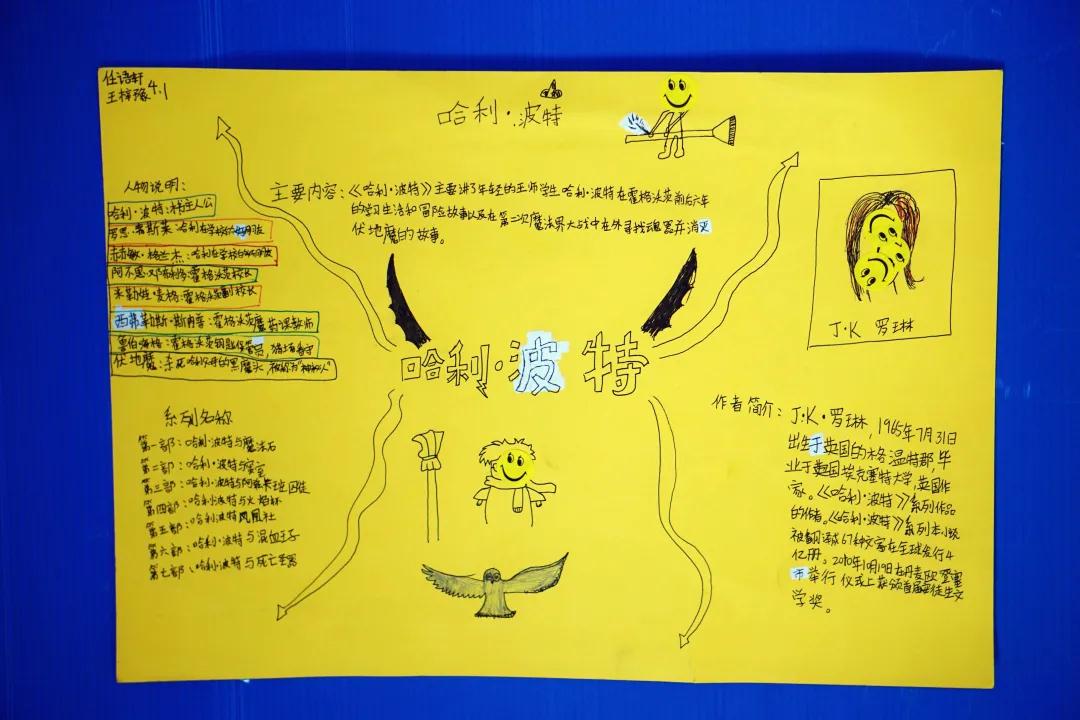 任语轩
王梓豫 4.1
哈利·波特
人物说明：
哈利·波特：本书主人公
罗恩·韦斯莱：哈利在学校的好朋友
赫敏·格兰杰：哈利在学校的好朋友
阿不思·邓布利多：霍格沃茨校长
米勒娃·麦格：霍格沃茨副校长
西弗勒斯·斯内普：霍格沃茨魔药课教师
鲁伯·海格：霍格沃茨钥匙保管员，猎场看守
伏地魔：杀死哈利父母的黑魔头，被称为“神秘人”
主要内容：《哈利·波特》主要讲了年轻的巫师学生哈利·波特在霍格沃茨前后六年
的学习生活和冒险故事以及在第二次魔法界大战中在外寻找魂器并消灭
伏地魔的故事。
哈利·波特
系列名称
第一部：哈利·波特与魔法石
第二部：哈利·波特与密室
第三部：哈利·波特与阿兹卡班囚徒
第四部：哈利波特与火焰杯
第五部：哈利波特凤凰社
第六部：哈利·波特与混血王子
第七部：哈利·波特与死亡圣器
J·K 罗琳
作者简介：J·K·罗琳，1965年7月31日
出生于英国的格温特郡，毕
业于英国埃克塞特大学，英国作
家。《哈利·波特》系列作品
的作者。《哈利·波特》系列本小说
被翻译成67种文字在全球发行4
亿册。2010年10月19日在丹麦欧登塞
市举行仪式上获颁首届安徒生文
学奖。